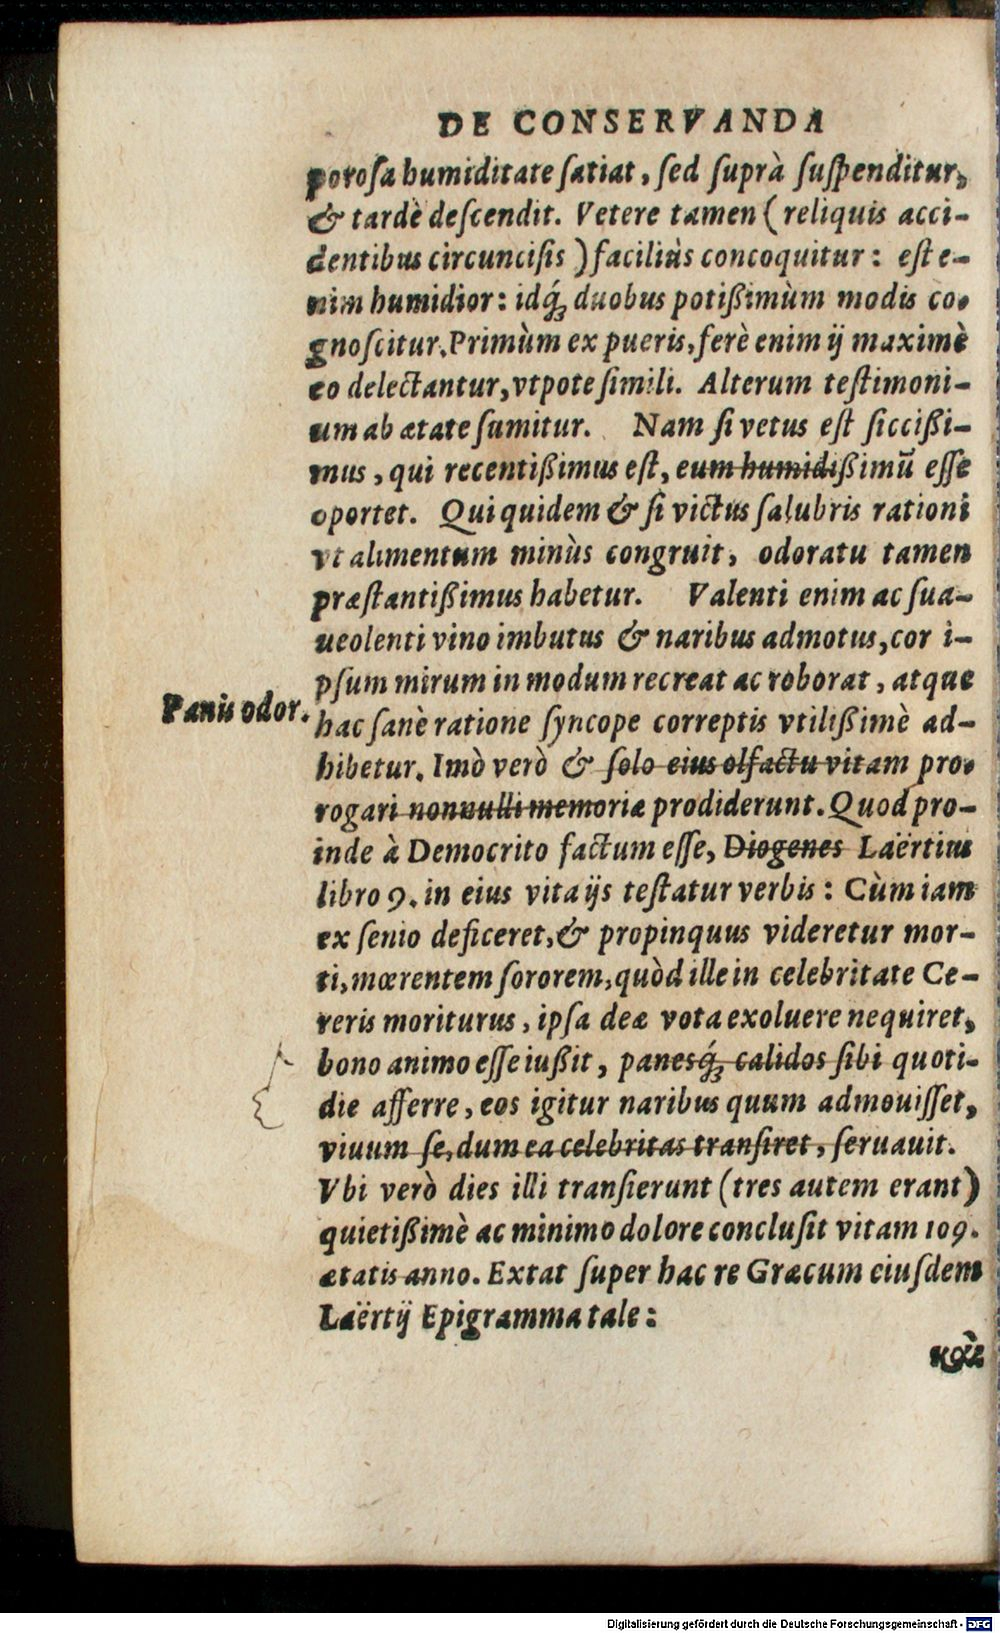 DE CONSERVANDA
porosa humiditate satiat, sed suprà suspenditur,
& tardè descendit. Vetere tamen (reliquis acci-
dentibus circuncisis) faciliùs concoquitur: est e-
nim humidior: idq́ꝫ duobus potißimùm modis co-
gnoscitur. Primùm ex pueris, ferè enim ij maximè
eo delectantur, vtpote simili. Alterum testimoni-
um ab ætate sumitur. Nam si vetus est siccißi-
mus, qui recentißimus est, eum humidißimũ esse
oportet. Qui quidem & si victus salubris rationi
vt alimentum minùs congruit, odoratu tamen
præstantißimus habetur. Valenti enim ac sua-
ueolenti vino imbutus & naribus admotus, cor i-
psum mirum in modum recreat ac roborat, atque
Panis odor.
hac sanè ratione syncope correptis vtilißimè ad-
hibetur. Imò verò & solo eius olfactu vitam pro-
rogari nonnulli memoriæ prodiderunt. Quod pro-
inde à Democrito factum esse, Diogenes Laërtius
libro 9. in eius vita ijs testatur verbis: Cùm iam
ex senio deficeret, & propinquus videretur mor-
ti, mœrentem sororem, quòd ille in celebritate Ce-
reris moriturus, ipsa deæ vota exoluere nequiret,
bono animo esse iußit, panesq́ꝫ calidos sibi quoti-
die afferre, eos igitur naribus quum admouisset,
viuum se, dum ea celebritas transiret, seruauit.
Vbi verò dies illi transierunt (tres autem erant)
quietißimè ac minimo dolore conclusit vitam 109.
ætatis anno. Extat super hac re Græcum eiusdem
Laërtij Epigramma tale:
καὶ
Digitalisierung gefördert durch die Deutsche Forschungsgemeinschaft - DFG